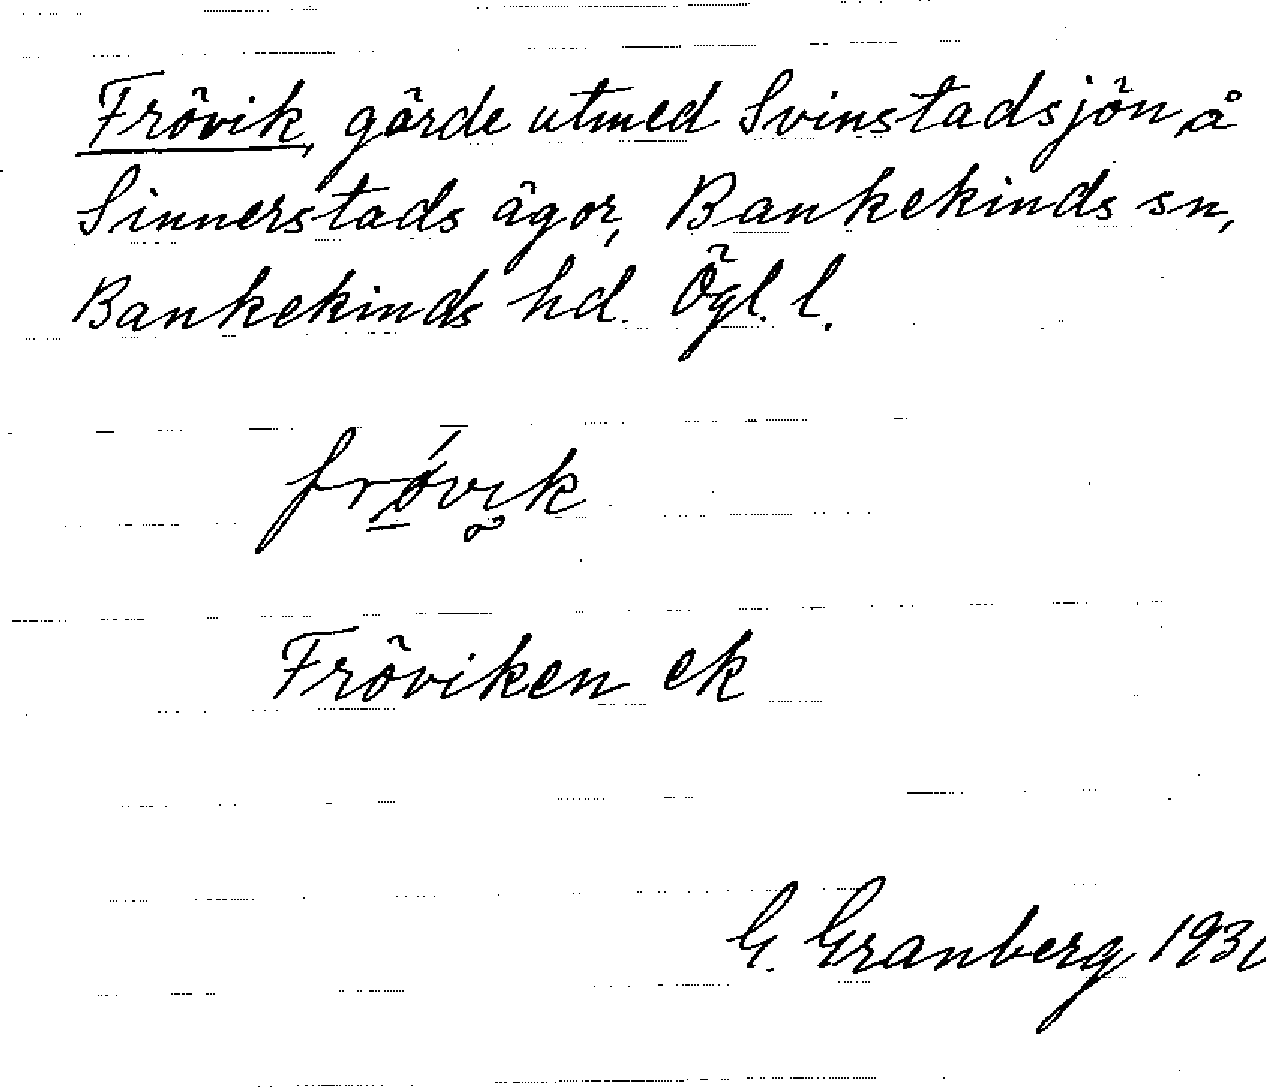 Frövik, gärde utmed Svinstadsjön å
Sinnerstads ägor, Bankekinds sn,
Bankekinds hd. Ögl. l.
frøvik
Fröviken ek
G. Granberg